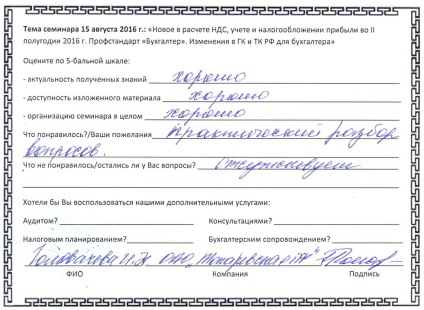 Тема семинара 15 августа 2016 г.: «Новое в расчете НДС, учете и налогообложении прибыли во II
полугодии 2016 г. Профстандарт «Бухгалтер». Изменения в ГК и ТК РФ для бухгалтера»
Оцените по 5-бальной шкале:
- актуальность полученных знаний хорошо
- доступность изложенного материала хорошо
- организацию семинара в целом хорошо
Что понравилось?/Ваши пожелания практический разбор
вопросов.
Что не понравилось/остались ли у Вас вопросы? Отсутствуют
Хотели бы Вы воспользоваться нашими дополнительными услугами:
Аудитом? Консультациями?
Налоговым планированием? Бухгалтерским сопровождением?
Головачева И.Н. ОАО
ФИО Компания Подпись